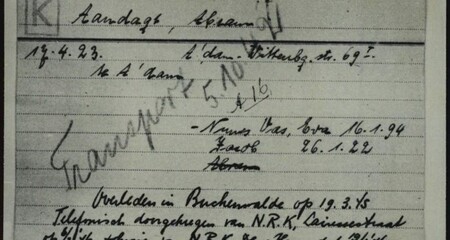 K
Aandagt, Abram
17.4.23. A'dam. Wittenbg. str. 69 I.
te A'dam
Transport 5.10.42
A 16
- Nunes Vas, Eva 16.1.94
Jacob 26.1.22
Abram
Overleden in Buchenwalde op 19.3.45
Telefonisch doorgekregen van N.R.K, Cairessestraat
N.R.K.